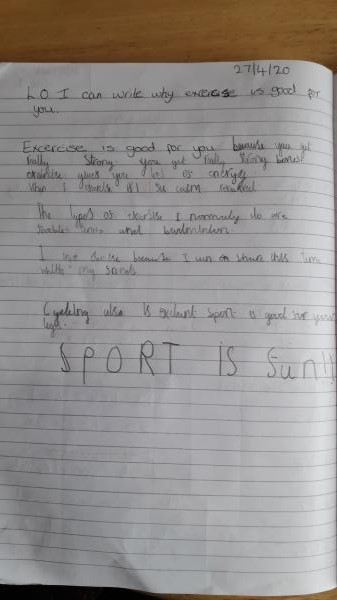 27/4/20
LO I can write why exercise is good for
you.
Excercise is good for you because you get
really strong. you get really strong bones
excercise gives you lots of energy
when I exercise it calm
The types of exercise I normaly do are
and badmintown.
I exercise because I can share this time
with my
Cycleing also is exelent sport is good for your
legs.
SPORT is fun!!